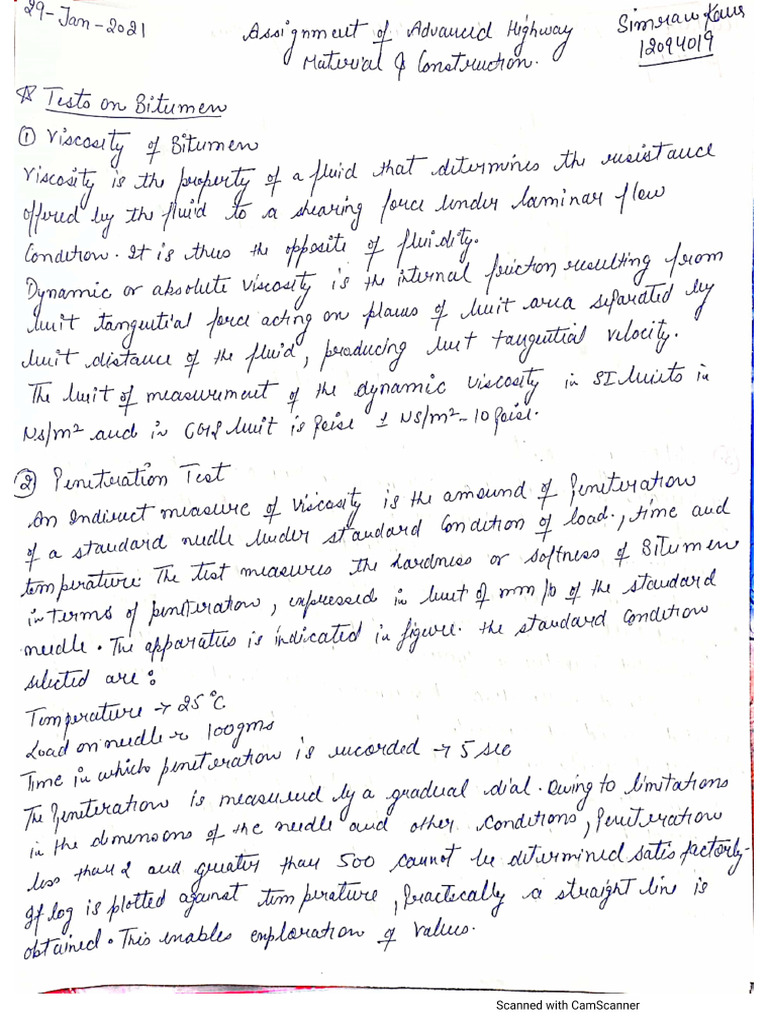 29-Jan-2021
Assignment of Advanced Highway
Material & Construction.
Simran Kaur
12094019
☆ Tests on Bitumen
① Viscosity of Bitumen
Viscosity is the property of a fluid that determines the resistance
offered by the fluid to a shearing force under laminar flow
Condition. It is thus the opposite of fluidity.
Dynamic or absolute viscosity is the internal friction resulting from
unit tangential force acting on planes of unit area separated by
unit distance of the fluid, producing unit tangential velocity.
The unit of measurement of the dynamic viscosity in SI units in
Ns/m² and in CGS unit is Poise 1 NS/m² - 10 Poise.
② Peniteration Test
An Indirect measure of viscosity is the amound of Peniteration
of a standard needle under standard Condition of load, time and
temperature. The test measures the hardness or softness of Bitumen
in terms of peniteration, expressed in unit of mm/10 of the standard
needle. The apparatus is indicated in figure. the standard Condition
selected are :
Temperature → 25°C
Load on needle → 100gms
Time in which peniteration is recorded → 5 sec
The Peniteration is measured by a gradual dial. Owing to limitations
in the dimensons of the needle and other conditions, Peniteration
less than 2 and greater than 500 cannot be determined satisfactorly.
If log is plotted against temperature, Practically a straight line is
obtained. This enables exploration of values.
Scanned with CamScanner